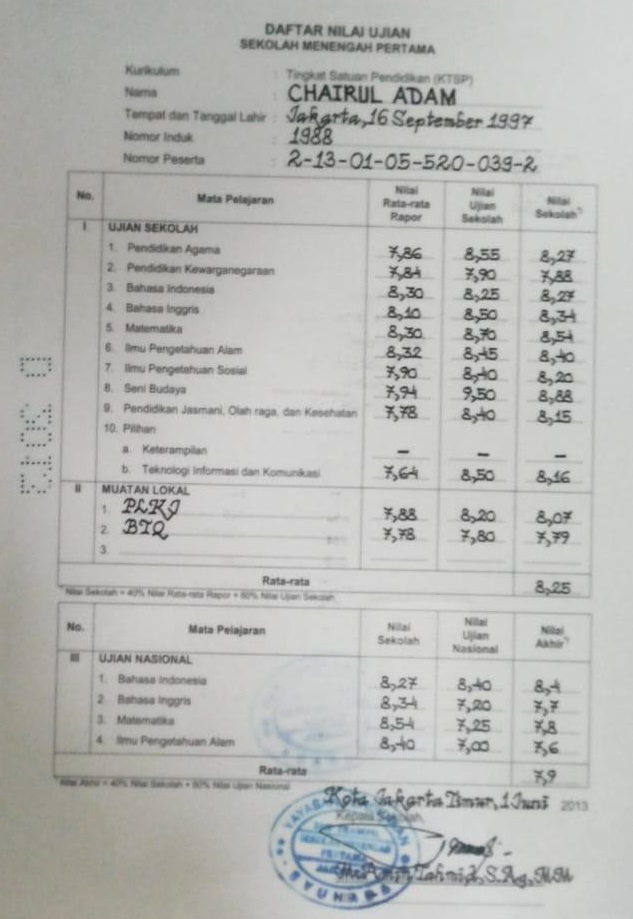 DAFTAR NILAI UJIAN
SEKOLAH MENENGAH PERTAMA
Kurikulum : Tingkat Satuan Pendidikan (KTSP)
Nama : CHAIRUL ADAM
Tempat dan Tanggal Lahir : Jakarta, 16 September 1997
Nomor Induk : 1988
Nomor Peserta : 2-13-01-05-520-039-2
No. Mata Pelajaran Nilai Rata-rata Rapor Nilai Ujian Sekolah Nilai Sekolah*)
I UJIAN SEKOLAH
1. Pendidikan Agama 7,86 8,55 8,27
2. Pendidikan Kewarganegaraan 7,84 7,90 7,88
3. Bahasa Indonesia 8,30 8,25 8,27
4. Bahasa Inggris 8,10 8,50 8,34
5. Matematika 8,30 8,70 8,54
6. Ilmu Pengetahuan Alam 8,32 8,45 8,40
7. Ilmu Pengetahuan Sosial 7,90 8,40 8,20
8. Seni Budaya 7,94 9,50 8,88
9. Pendidikan Jasmani, Olah raga, dan Kesehatan 7,78 8,40 8,15
10. Pilihan
a. Keterampilan - - -
b. Teknologi Informasi dan Komunikasi 7,64 8,50 8,16
II MUATAN LOKAL
1. PLKJ 7,88 8,20 8,07
2. BTQ 7,78 7,80 7,79
3.
Rata-rata 8,25
*) Nilai Sekolah = 40% Nilai Rata-rata Rapor + 60% Nilai Ujian Sekolah
No. Mata Pelajaran Nilai Sekolah Nilai Ujian Nasional Nilai Akhir*)
III UJIAN NASIONAL
1. Bahasa Indonesia 8,27 8,40 8,4
2. Bahasa Inggris 8,34 7,20 7,7
3. Matematika 8,54 7,25 7,8
4. Ilmu Pengetahuan Alam 8,40 7,00 7,6
Rata-rata 7,9
Nilai Akhir = 40% Nilai Sekolah + 60% Nilai Ujian Nasional
Kota Jakarta Timur, 1 Juni 2013
Kepala Sekolah,
Tahmid, S.Ag, MM